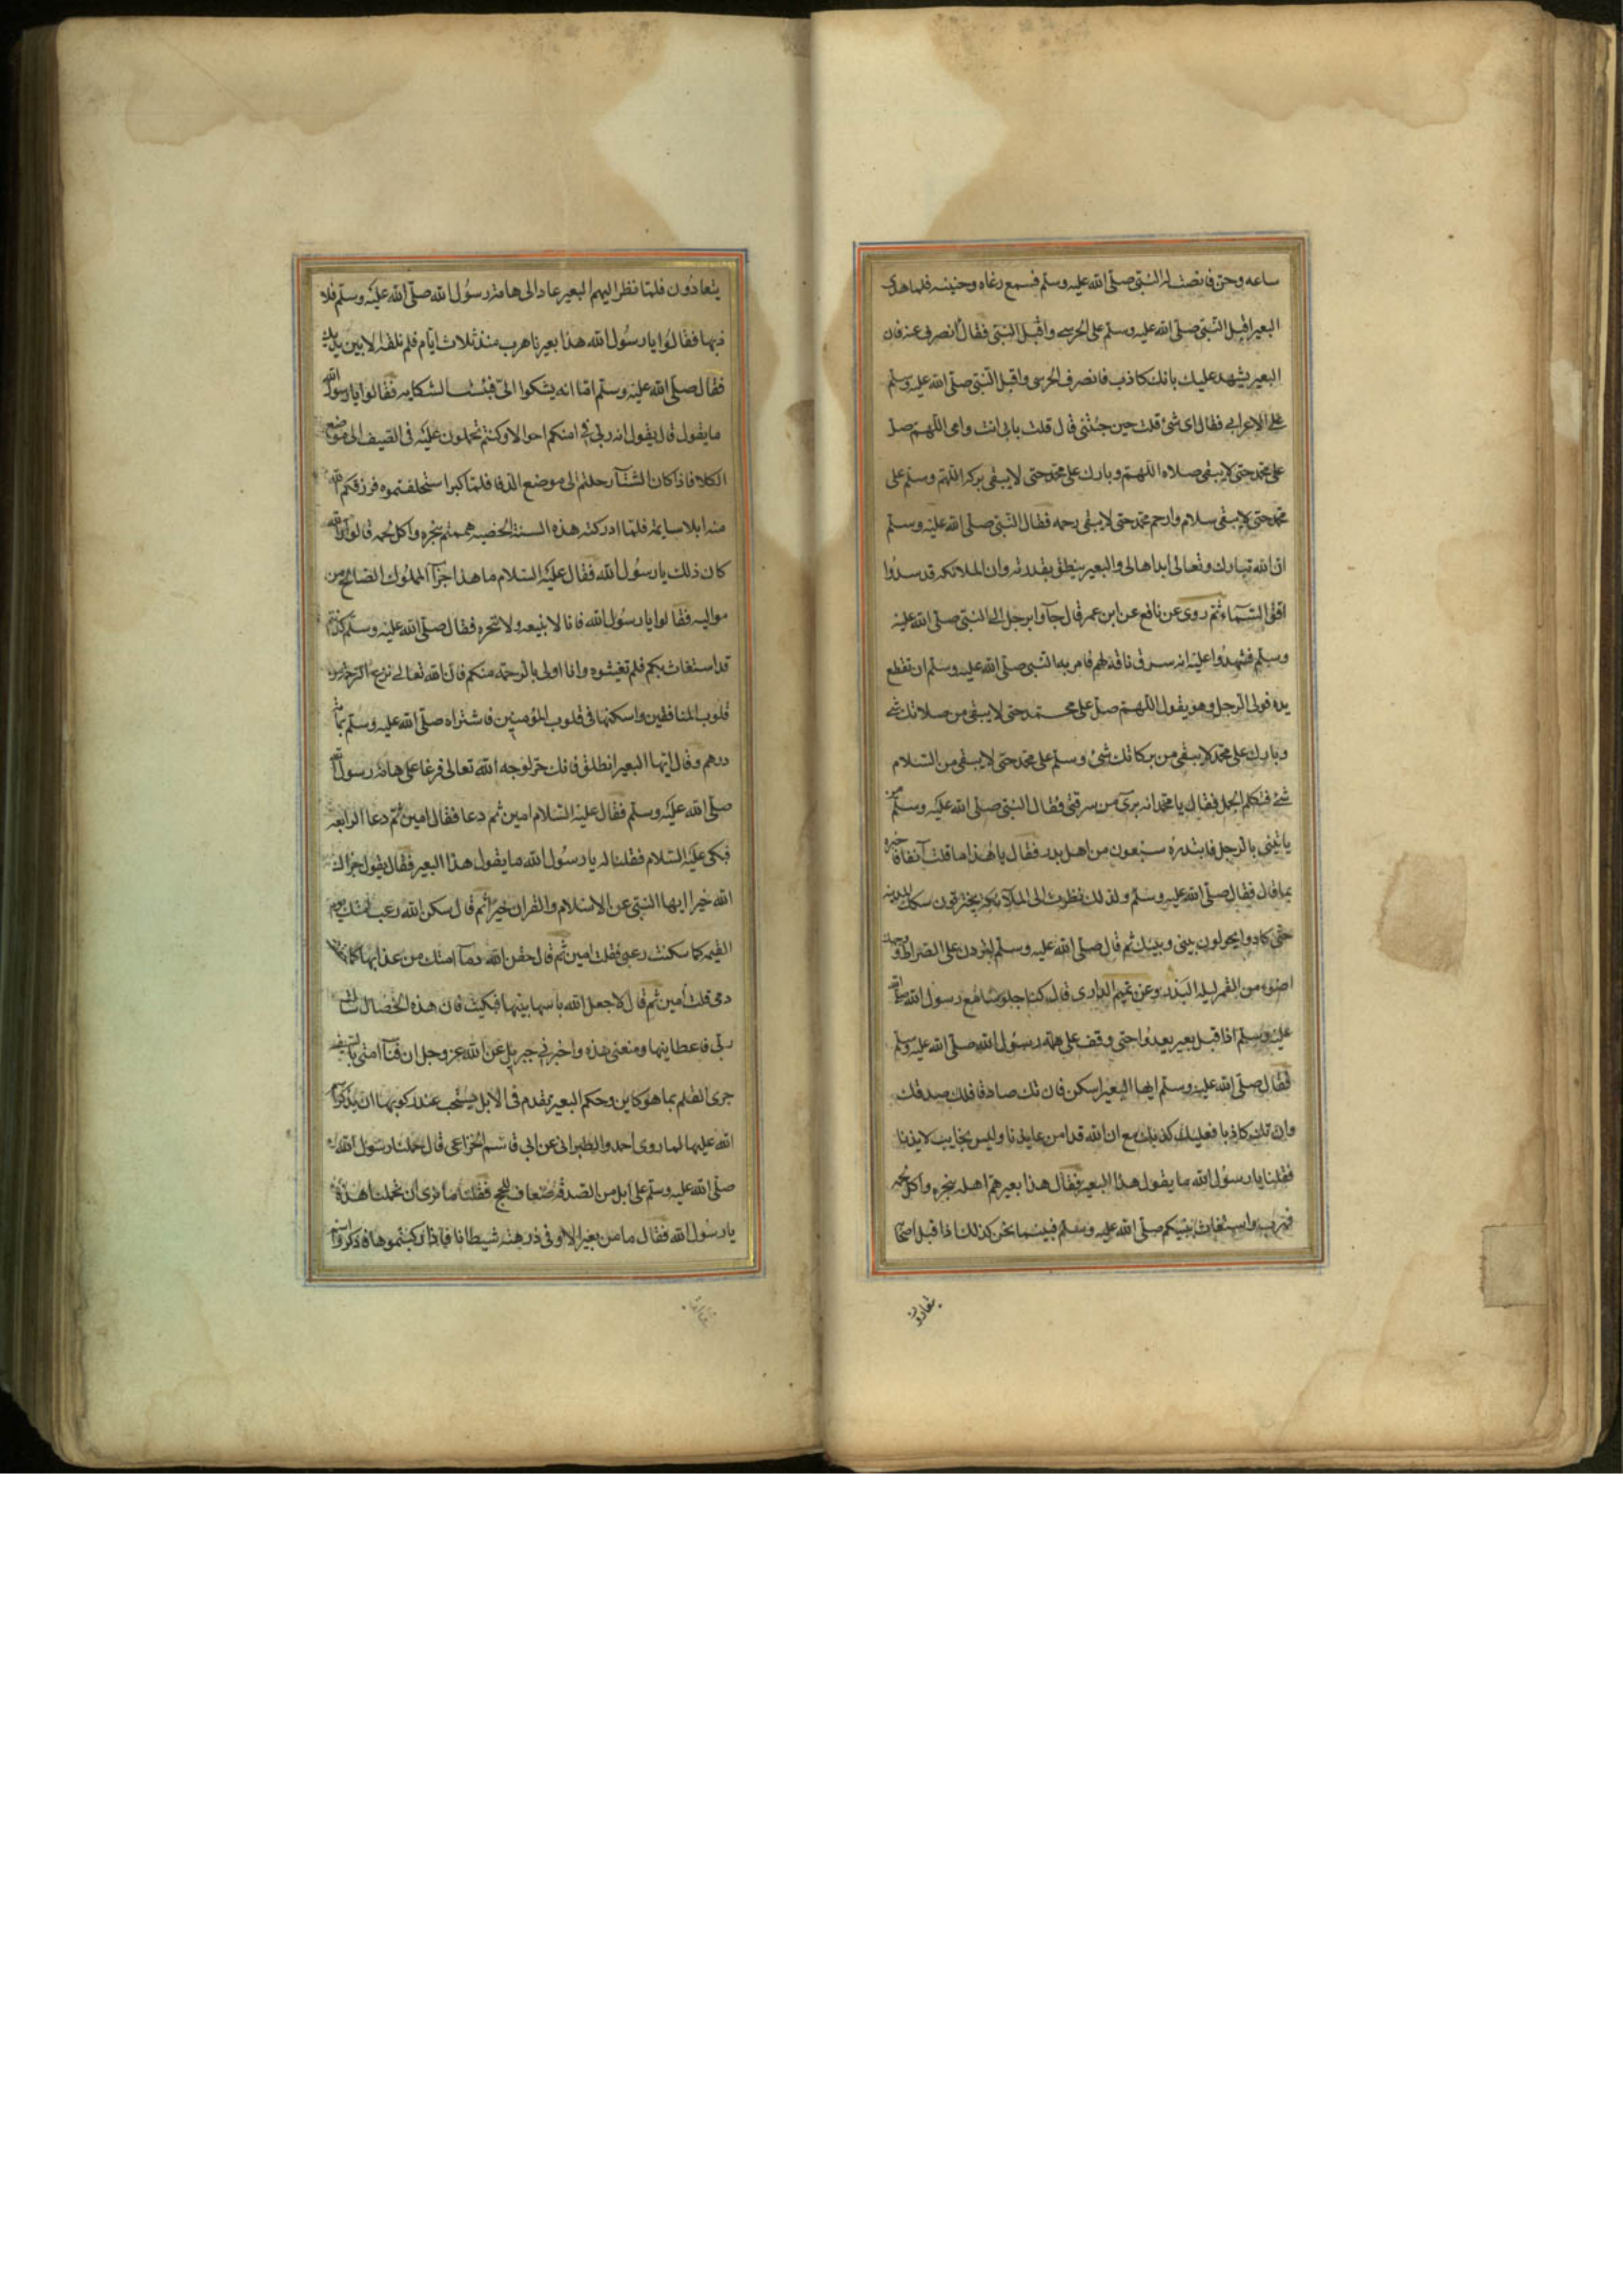 ساعه وحن فانصت له النبي صلى الله عليه وسلم فسمع رغاه وحنينه فلما هدى
البعير اقبل النبي صلى الله عليه وسلم على الحرسي واقبل النبي فقال انصرف عنه فان
البعير يشهد عليك بانك كاذب فانصرف الحرسى واقبل النبي صلى الله عليه وسلم
على الاعرابي فقال اى شئ قلت حين جئتنى قال قلت بابي انت وامى اللهم صل
على محمد حتى لا يبقى صلاه اللهم وبارك على محمد حتى لا يبقى بركه اللهم وسلم على
محمد حتى لا يبقى سلام وارحم محمد حتى لا يبقى رحمه فقال النبي صلى الله عليه وسلم
ان الله تبارك وتعالى ابداها لى والبعير ينطق بقدرته وان الملائكه قد سدوا
افق السماء ثم روى عن نافع عن ابن عمر قال جآوا برجل الى النبي صلى الله عليه
وسلم فشهدوا عليه انه سرق ناقة لهم فامر به النبي صلى الله عليه وسلم ان تقطع
يده فولى الرجل وهو يقول اللهم صل على محمد حتى لا يبقى من صلاتك شئ
وبارك على محمد لا يبقى من بركاتك شئ وسلم على محمد حتى لا يبقى من السلام
شئ فتكلم الجمل فقال يا محمد انه برئ من سرقتى فقال النبي صلى الله عليه وسلم من
ياتينى بالرجل فابتدره سبعون من اهل بدر فقال يا هذا ما قلت آنفا فاخبره
بما قال فقال صلى الله عليه وسلم ولذلك نظرت الى الملآئكه يخترقون سكك المدينه
حتى كادوا يحولون بينى وبينك ثم قال صلى الله عليه وسلم لتردن على الصراط ووجهك
اضوء من القمر ليله البدر وعن تميم الدارى قال كنا جلوسا مع رسول الله صلى الله
عليه وسلم اذا اقبل بعير يعدوا حتى وقف على هامة رسول الله صلى الله عليه وسلم
فقال صلى الله عليه وسلم ايها البعير اسكن فان تك صادقا فلك صدقك
وان تك كاذبا فعليك كذبك مع ان الله قد امن عايذنا وليس بخايب لايذنا
فقلنا يا رسول الله ما يقول هذا البعير فقال هذا بعير هم اهله بنحره واكل لحمه
فهرب واستغاث بنبيكم صلى الله عليه وسلم فبينما نحن كذلك اذا قبل اصحابه
يتعادون
يتعادون فلما نظر اليهم البعير عاد الى هامة رسول الله صلى الله عليه وسلم فلاذ
بها فقالوا يا رسول الله هذا بعيرنا هرب منذ ثلاث ايام فلم نلقه الا بين يديك
فقال صلى الله عليه وسلم اما انه يشكوا الى فبئست الشكايه فقالوا يا رسول الله
ما يقول قال يقول انه ربى فى امنكم احوالا وكنتم تحملون عليه فى الصيف الى موضع
الكلا فاذا كان الشتآ رحلتم الى موضع الدفا فلما كبر استفحلتموه فرزقكم الله
منه ابلا سايمة فلما ادركته هذه السنة الخصبه هممتم بنحره واكل لحمه قالوا والله
كان ذلك يا رسول الله فقال عليه السلام ما هذا جزآ المملوك الصالح من
مواليه فقالوا يا رسول الله فانا لا نبيعه ولا ننحره فقال صلى الله عليه وسلم كذبتم
قد استغاث بكم فلم تغيثوه وانا اولى بالرحمة منكم فان الله تعالى نزع الرحمة من
قلوب المنافقين واسكنها فى قلوب المؤمنين فاشتراه صلى الله عليه وسلم بمائة
درهم وقال ايها البعير انطلق فانك حر لوجه الله تعالى فرغا على هامة رسول الله
صلى الله عليه وسلم فقال عليه السلام امين ثم دعا فقال امين ثم دعا الرابعة
فبكى عليه السلام فقلنا له يا رسول الله ما يقول هذا البعير فقال يقول جزاك
الله خيرا ايها النبي عن الاسلام والقران خيرا ثم قال سكن الله رعب امتك يوم
القيمه كما سكنت رعبى فقلت امين ثم قال حقن الله دمآ امتك من عدايها كما حقنت
دمى قلت امين ثم قال لا جعل الله باسها بينها فبكيت فان هذه الخصال سالت
ربى فاعطاينها ومنعنى هذه واخبرنى جبريل عن الله عز وجل ان فنآ امتى بالسيف
جرى القلم بما هو كاين وحكم البعير تقدم فى الابل يستحب عند ركوبها ان يذكر اسم
الله عليها لما روى احمد والطبرانى عن ابى قاسم الخزاعى قال حملنا رسول الله
صلى الله عليه وسلم على ابل من الصدقة ضعاف للحج فقلنا ما نرى ان تحملنا هذه
يا رسول الله فقال ما من بعير الا وفى ذروته شيطانا فاذا ركبتموها فاذكروا اسم